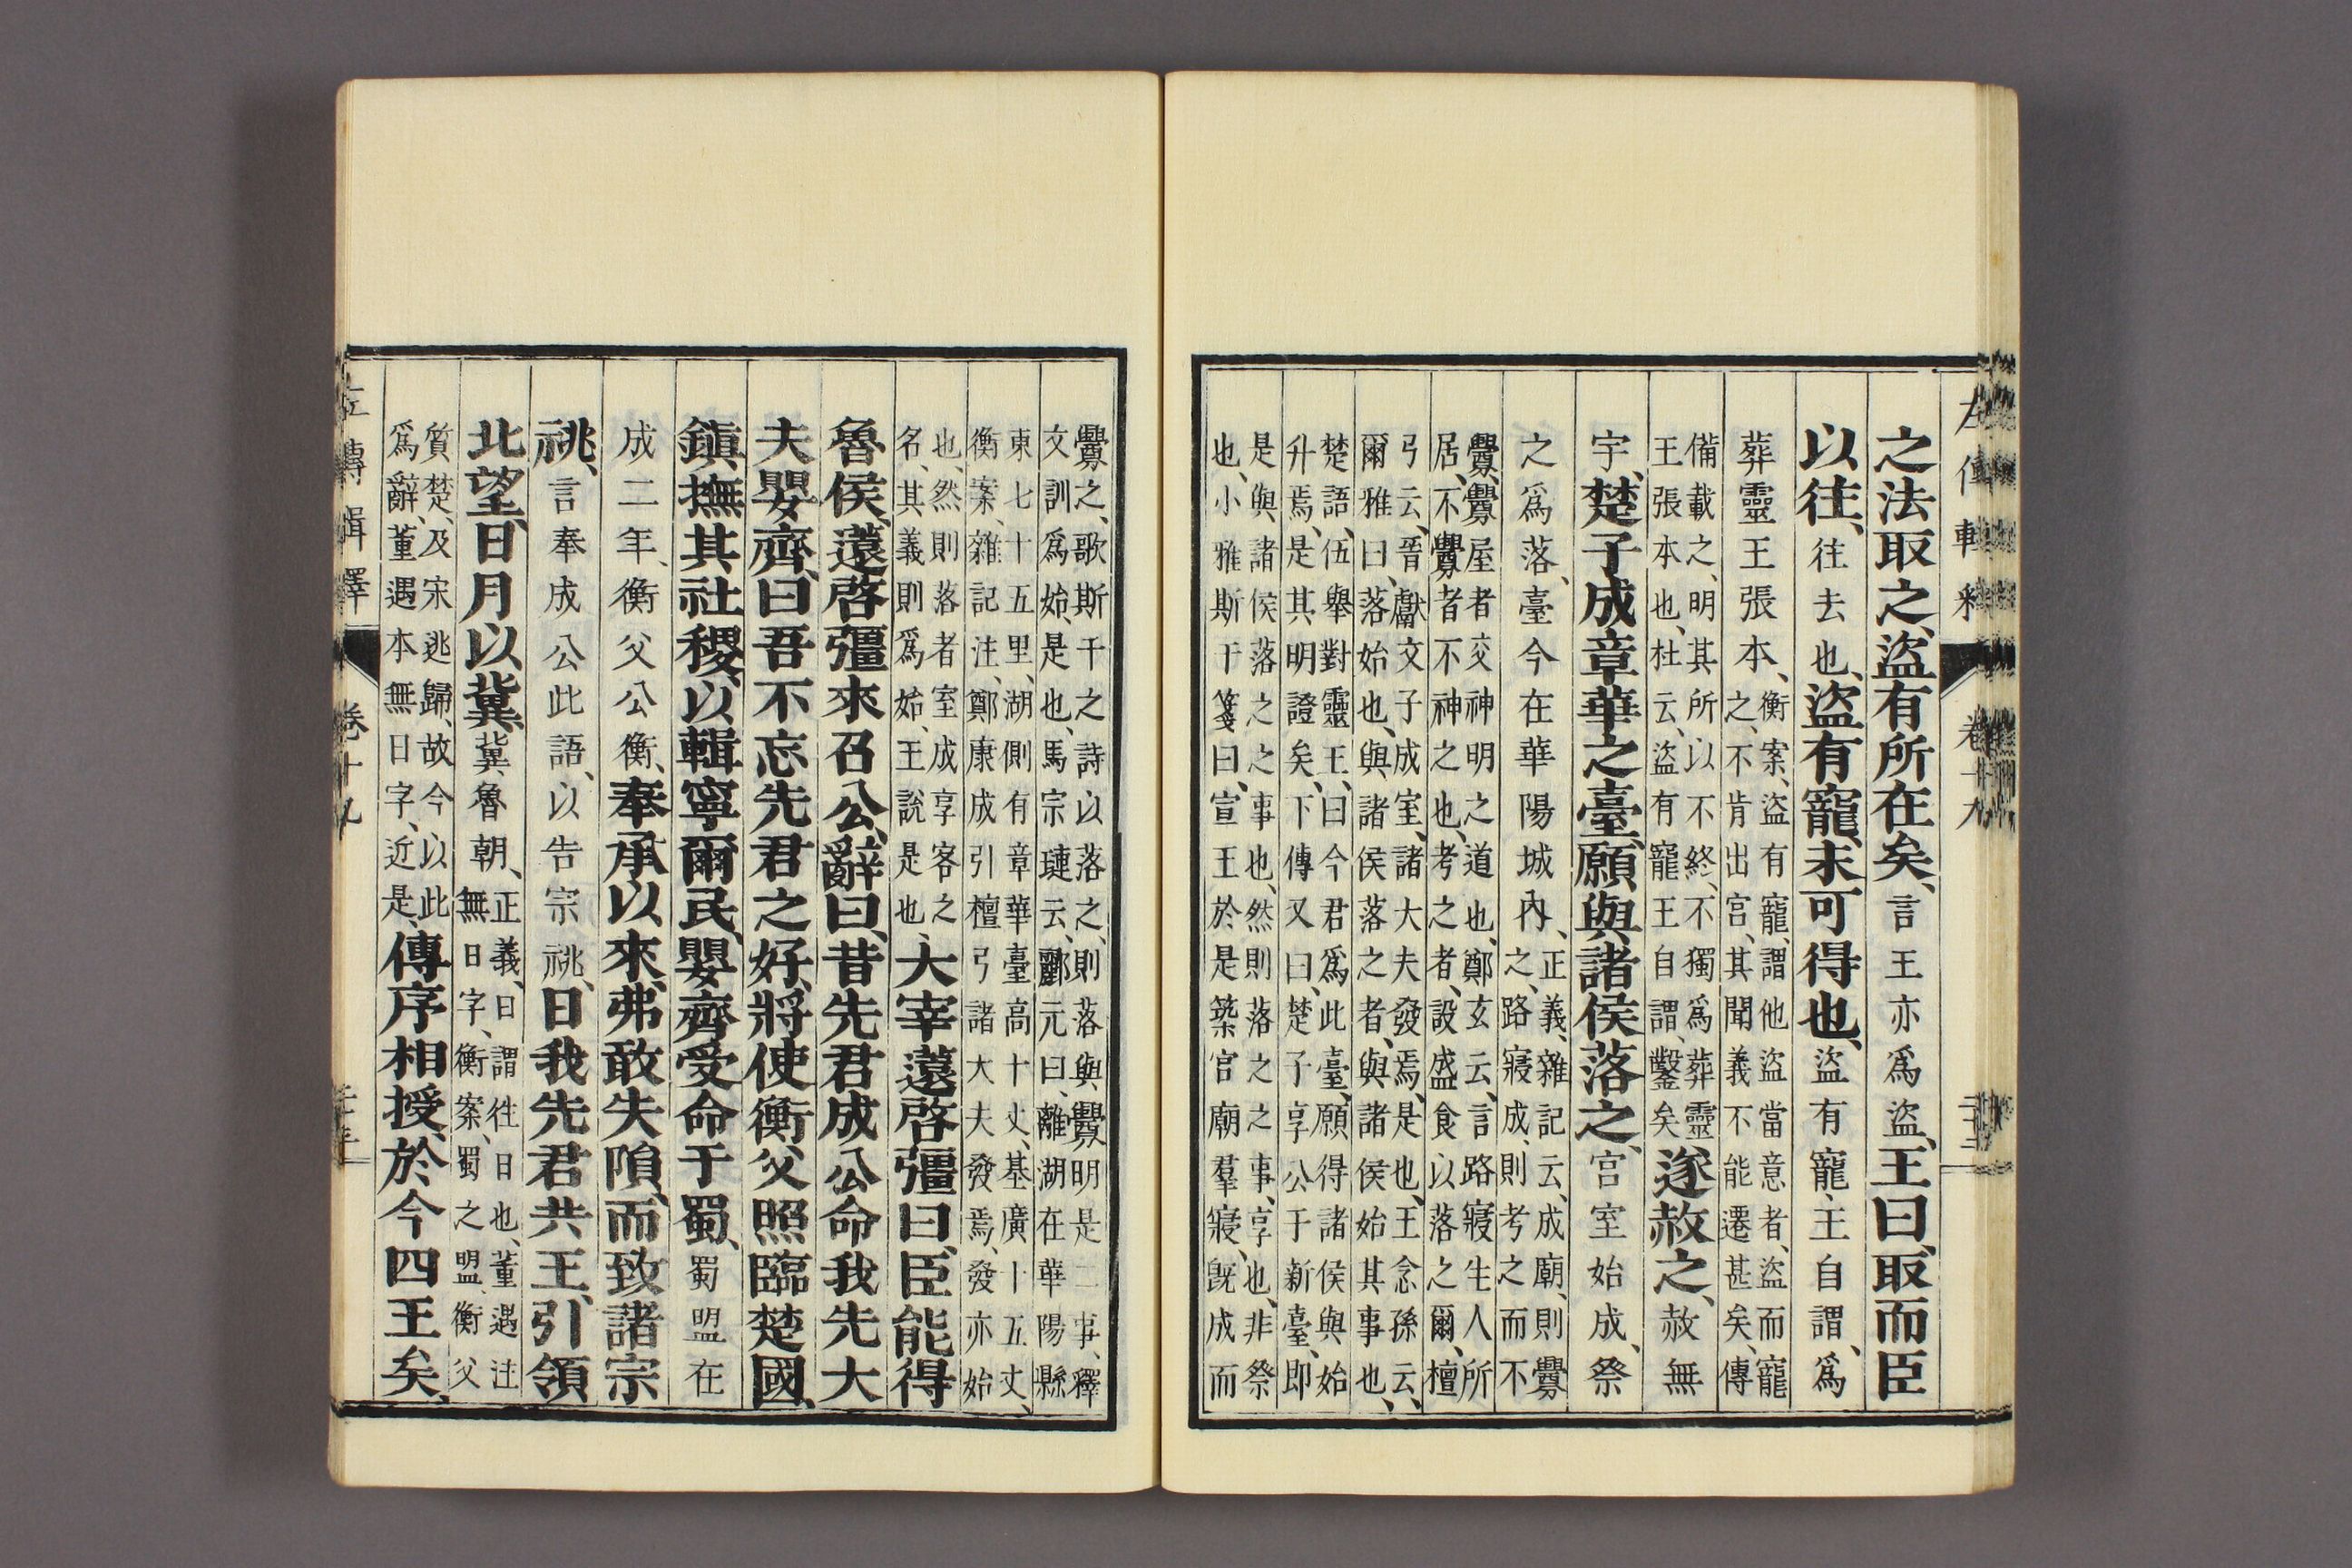 左傳輯釋
卷十九
之法取之、盜有所在矣、言王亦爲盜、王曰、取而臣
以往、往去也、盜有寵、未可得也、盜有寵、王自謂、爲
葬靈王張本、衡案、盜有寵、謂他盜當意者、盜而寵
之、不肯出宮、其聞義不能遷甚矣、傳
備載之、明其所以不終、不獨爲葬靈
王張本也、杜云、盜有寵王自謂、鑿矣、遂赦之、赦無
宇、楚子成章華之臺、願與諸侯落之、宮室始成、祭
之爲落、臺今在華陽城內、正義、雜記云、成廟、則釁
之、路寢成、則考之而不
釁、釁屋者交神明之道也、鄭玄云、言路寢生人所
居、不釁者不神之也、考之者、設盛食以落之爾、檀
弓云、晉獻文子成室、諸大夫發焉、是也、王念孫云、
爾雅曰、落始也、與諸侯落之者、與諸侯始其事也、
楚語、伍舉對靈王、曰今君爲此臺、願得諸侯與始
升焉、是其明證矣、下傳又曰、楚子享公于新臺、即
是與諸侯落之之事也、然則落之之事、享也、非祭
也、小雅斯干箋曰、宣王於是築宮廟羣寢、旣成而
釁之、歌斯干之詩以落之、則落與釁明是二事、釋
文訓爲始、是也、馬宗璉云、酈元曰、離湖在華陽縣
東七十五里、湖側有章華臺高十丈、基廣十五丈、
衡案、雜記注、鄭康成引檀弓諸大夫發焉、發亦始
也、然則落者室成享客之
名、其義則爲始、王說是也、大宰薳啓彊曰、臣能得
魯侯、薳啓彊來召公、辭曰、昔先君成公命我先大
夫嬰齊、曰吾不忘先君之好、將使衡父照臨楚國、
鎭撫其社稷、以輯寧爾民、嬰齊受命于蜀、蜀盟在
成二年、衡父公衡、奉承以來、弗敢失隕、而致諸宗
祧、言奉成公此語、以告宗祧、日我先君共王、引領
北望、日月以冀、冀魯朝、正義、日謂往日也、董遇注
無日字、衡案、蜀之盟、衡父
質楚、及宋逃歸、故今以此
爲辭、董遇本無日字、近是、傳序相授、於今四王矣、
左傳輯釋
卷十九